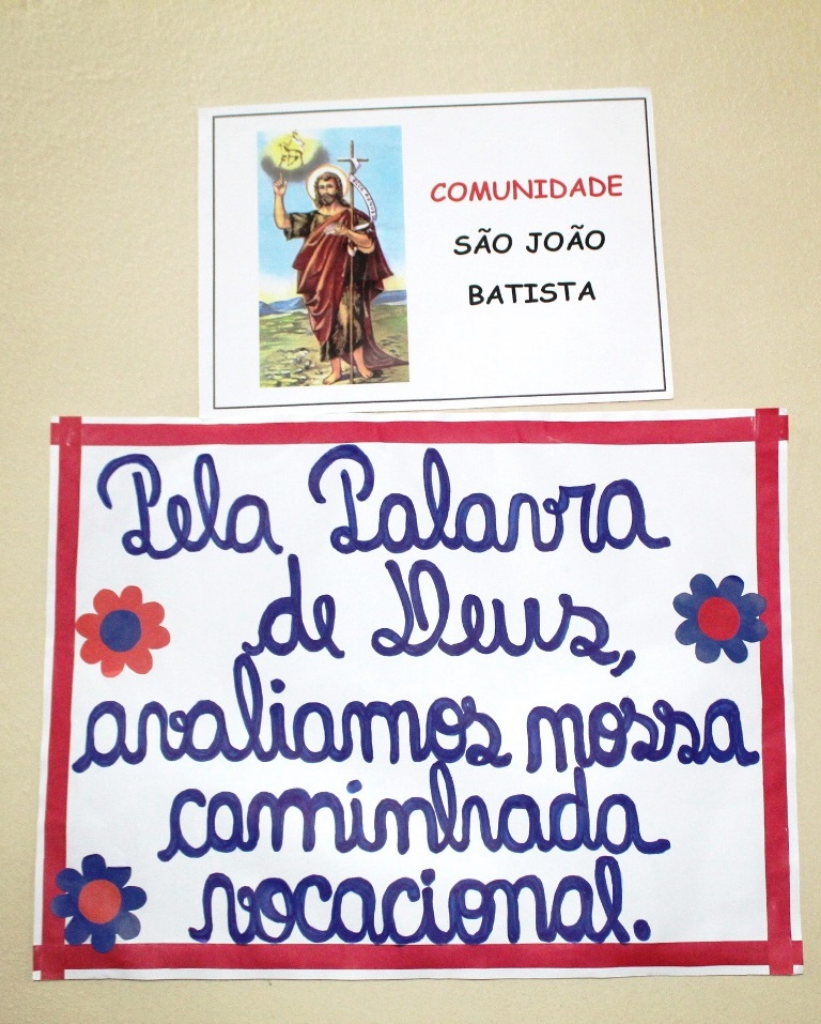 COMUNIDADE
SÃO JOÃO
BATISTA
Pela Palavra
de Deus,
avaliamos nossa
caminhada
vocacional.